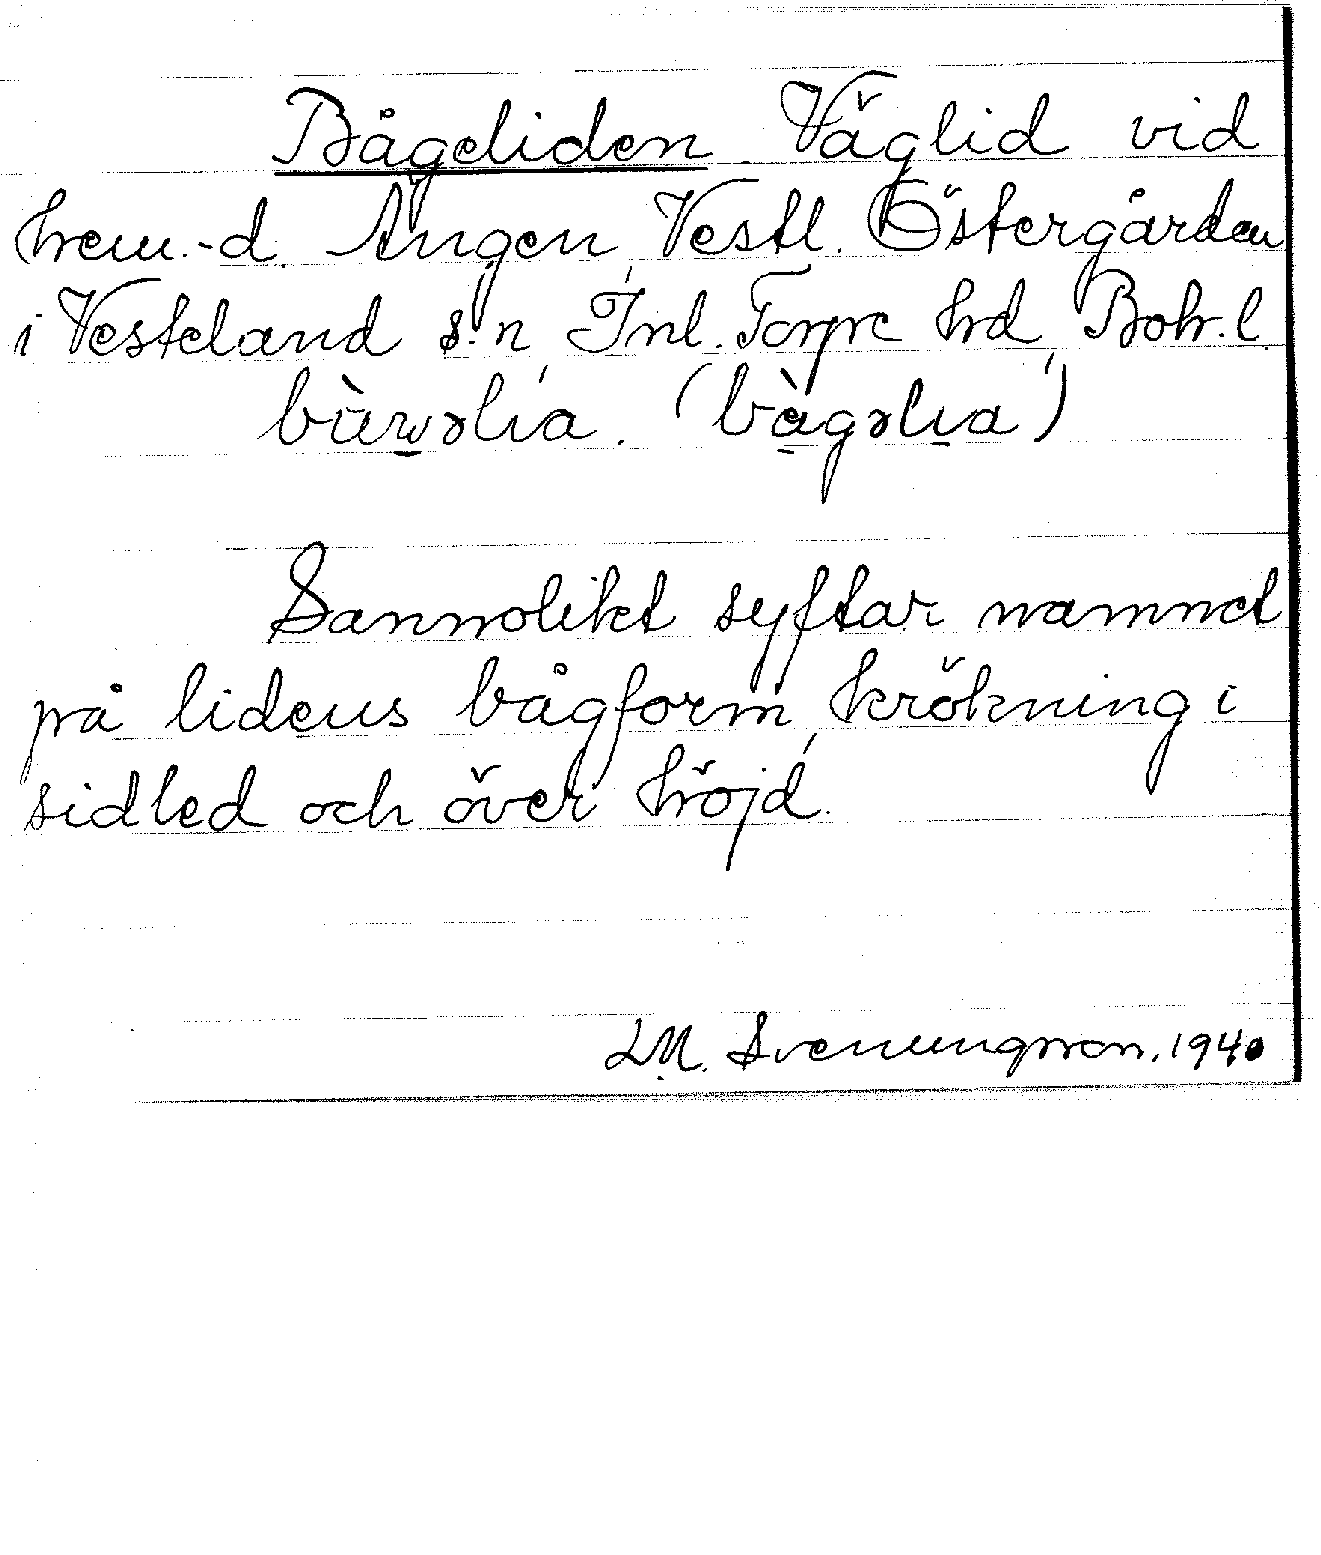 Bågeliden. Väglid vid
hem.-d. Ängen, Vestl. Östergården
i Vesteland s:n, Inl. Torpe hd, Boh. l.
bùwəlia. (bàgəlıa)
Sannolikt syftar namnet
på lidens bågform, krökning i
sidled och över höjd.
LM. Svenungsson. 1940